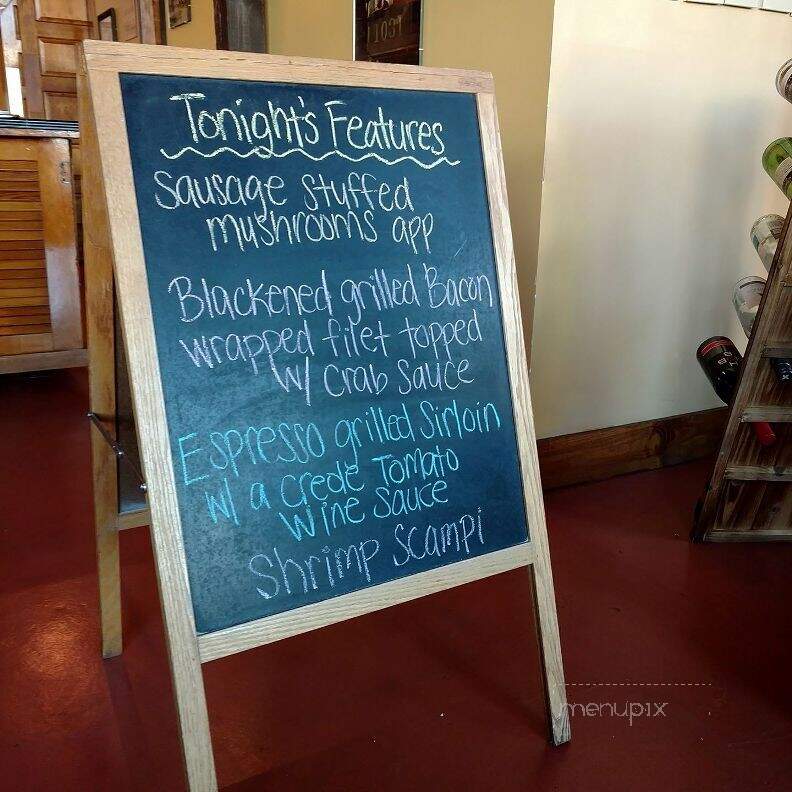 Tonight's Features
Sausage Stuffed
mushrooms app
Blackened grilled Bacon
wrapped filet topped
w/ Crab Sauce
Espresso grilled Sirloin
w/ a Creole Tomato
Wine Sauce
Shrimp Scampi
menupix